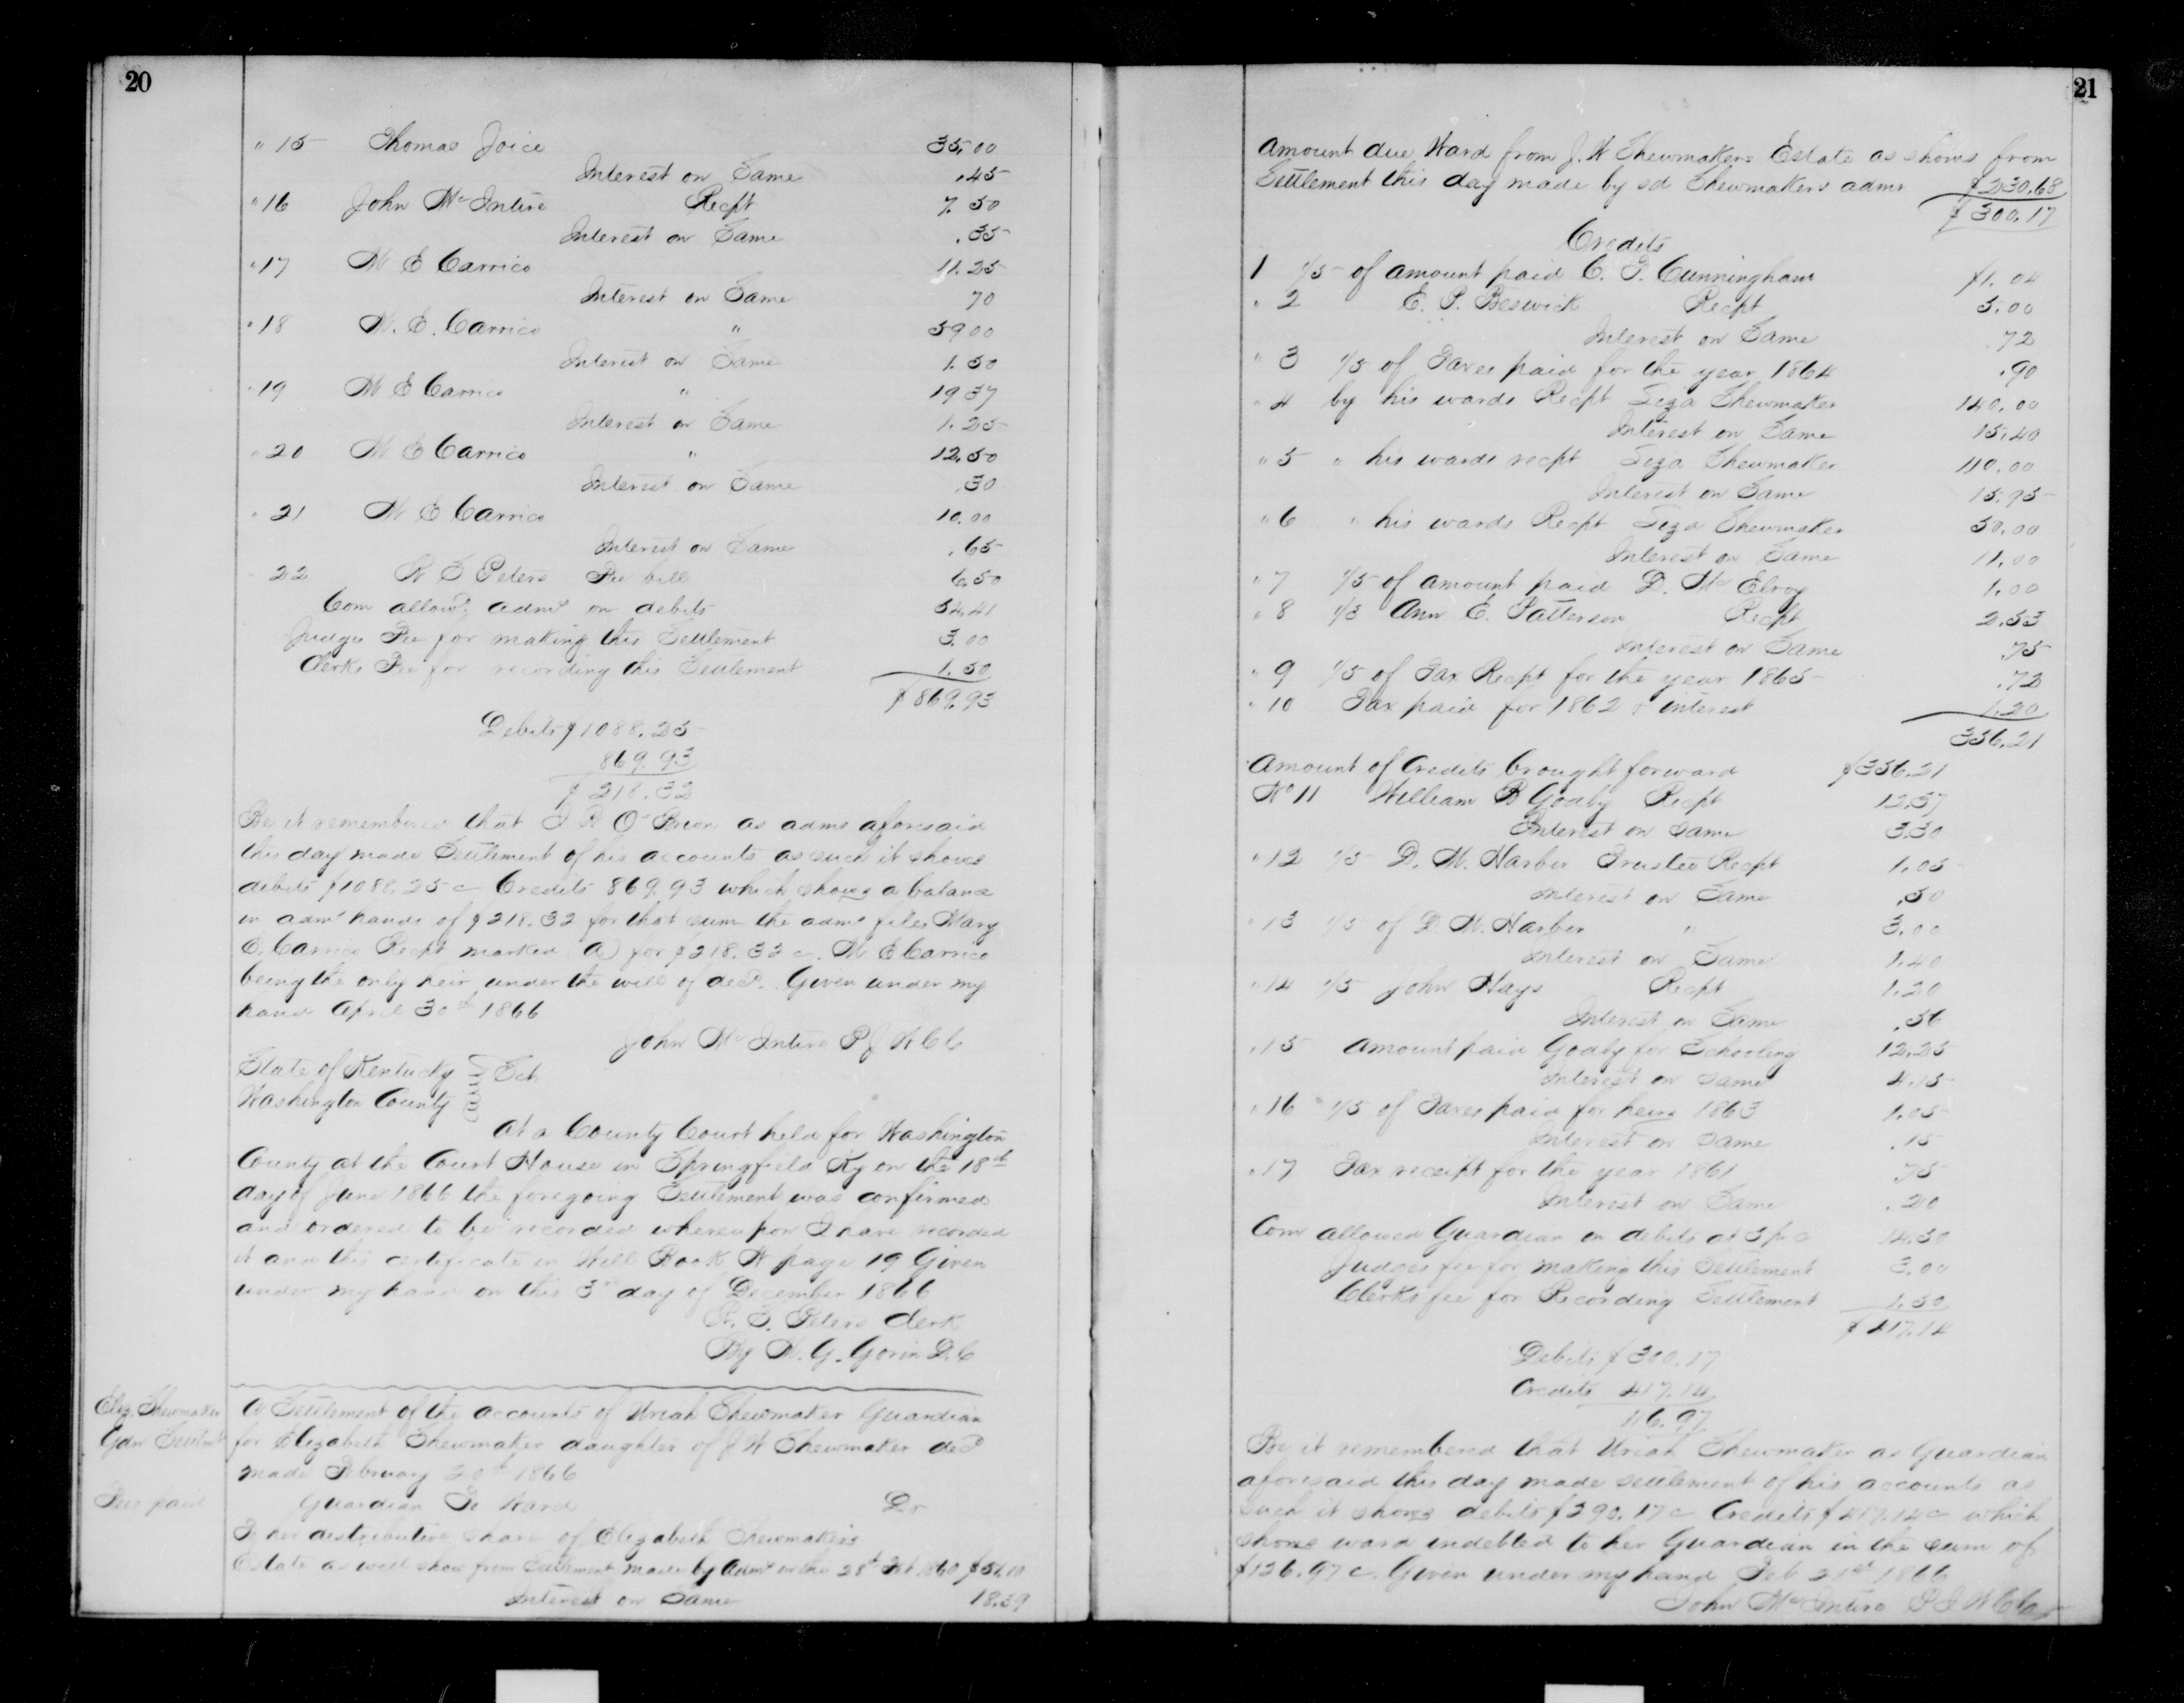 20
" 15 Thomas Joice 35.00
Interest on Same .45
" 16 John McIntire Recpt 7.50
Interest on Same .35
" 17 M E Carrico 11.25
Interest on Same 70
" 18 M. E. Carrico " 59 00
Interest on Same 1.50
" 19 M E Carrico " 19 37
Interest on Same 1.25
" 20 M E Carrico " 12.50
Interest on Same .30
" 21 M E Carrico 10.00
Interest on Same .65
22 R S Peters Fee bill 6.50
Com allowd. admr on debits 54.41
Judges Fee for making this Settlement 3.00
Clerks Fee for recording this Settlement 1.50
$869.93
Debits $1088.25
869.93
$218.32
Be it remembered that J R O'Brion as admr aforesaid
this day made Settlement of his accounts as such it shows
debits $1088.25 c Credits 869.93 which shows a balance
in admr hands of $218.32 for that sum the admr files Mary
E. Carrico Recpt marked (A) for $218.32 c. M E Carrico
being the only heir under the will of decd. Given under my
hand April 30th 1866
John McIntire P J W C C
State of Kentucky
Washington County Sct
At a County Court held for Washington
County at the Court House in Springfield Ky on the 18th
day of June 1866 the foregoing Settlement was confirmed
and ordered to be recorded whereupon I have recorded
it and this certificate in Will Book W page 19 Given
under my hand on this 3rd day of December 1866
R. S. Peters Clerk
By W. G. Gorin D.C
Eliz. Shewmaker
Gdn Settlmt
Fees paid
A Settlement of the accounts of Uriah Shewmaker Guardian
for Elizabeth Shewmaker daughter of J W Shewmaker decd
made February 20th 1866
Guardian To Ward Dr
To her distributive share of Elizabeth Shewmakers
Estate as will show from Settlement made by Admr on the 28th 1860 $51.10
Interest on Same 18.39
21
Amount due Ward from J. W Shewmakers Estate as shows from
Settlement this day made by sd Shewmakers admr $230.68
$300.17
Credits
1 1/5 of amount paid C. T. Cunningham $1.04
" 2 E. P. Beswick Recpt 5.00
Interest on Same .72
" 3 1/5 of Taxes paid for the year 1864 .90
" 4 by his wards Recpt Liza Shewmaker 140.00
Interest on Same 15.40
" 5 " his wards recpt Liza Shewmaker 110.00
Interest on Same 15.95
" 6 " his wards Recpt Liza Shewmaker 50.00
Interest on Same 11.00
" 7 1/5 of amount paid D. McElroy 1.00
" 8 1/3 Ann E. Patterson Recpt 2.53
Interest on Same .75
" 9 1/5 of Tax Recpt for the year 1865 .72
" 10 Tax paid for 1862 & interest 1.20
356.21
Amount of Credits brought forward $356.21
No 11 William B Goaly Recpt 12.57
Interest on Same 3.30
" 12 1/5 D. M. Harber Trustee Recpt 1.05
Interest on Same .50
" 13 1/5 of D. M. Harber " 3.00
Interest on Same 1.40
" 14 1/5 John Hays Recpt 1.20
Interest on Same .56
" 15 Amount paid Goaly for Schooling 12.25
Interest on Same 4.15
" 16 1/5 of Taxes paid for heirs 1863 1.05
Interest on Same .15
" 17 Tax receipt for the year 1861 .75
Interest on Same .20
Com allowed Guardian on debits at 5 p c 14.50
Judges fee for making this Settlement 3.00
Clerks fee for Recording Settlement 1.50
$417.14
Debits $300.17
Credits 417.14
116.97
Be it remembered that Uriah Shewmaker as Guardian
aforesaid this day made settlement of his accounts as
such it shows debits $290.17 c Credits $417.14 c which
shows ward indebted to her Guardian in the sum of
$126.97 c. Given under my hand Feb 21st 1866
John McIntire P J W C C